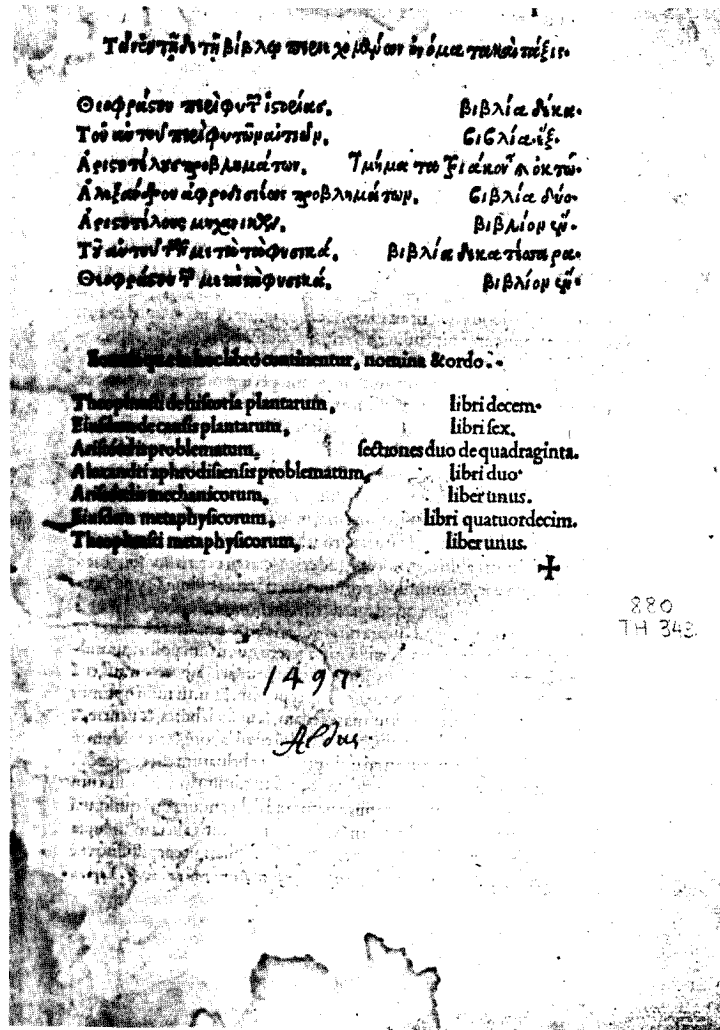 1
Τῶν ἐν τῇδε τῇ βίβλῳ περιεχομένων ὀνόματα καὶ τάξις.
Θεοφράστου περὶ φυτῶν ἱστορίας. βιβλία δέκα.
Τοῦ αὐτοῦ περὶ φυτῶν αἰτιῶν. βιβλία ἕξ.
Ἀριστοτέλους προβλημάτων. Τμήματα τριάκοντα ὀκτώ.
Ἀλεξάνδρου ἀφροδισιέως προβλημάτων. βιβλία δύο.
Ἀριστοτέλους μηχανικῶν. βιβλίον ἕν.
Τοῦ αὐτοῦ τῶν μετὰ τὰ φυσικά. βιβλία δεκατέσσαρα.
Θεοφράστου τῶν μετὰ τὰ φυσικά. βιβλίον ἕν.
Eorum quae in hoc libro continentur, nomina & ordo.
Theophrasti de historia plantarum, libri decem.
Eiusdem de causis plantarum, libri sex.
Aristotelis problematum, sectiones duo de quadraginta.
Alexandri aphrodisiensis problematum, libri duo.
Aristotelis mechanicorum, liber unus.
Eiusdem metaphysicorum, libri quatuordecim.
Theophrasti metaphysicorum, liber unus.
880
TH 343
1497.
Aldus